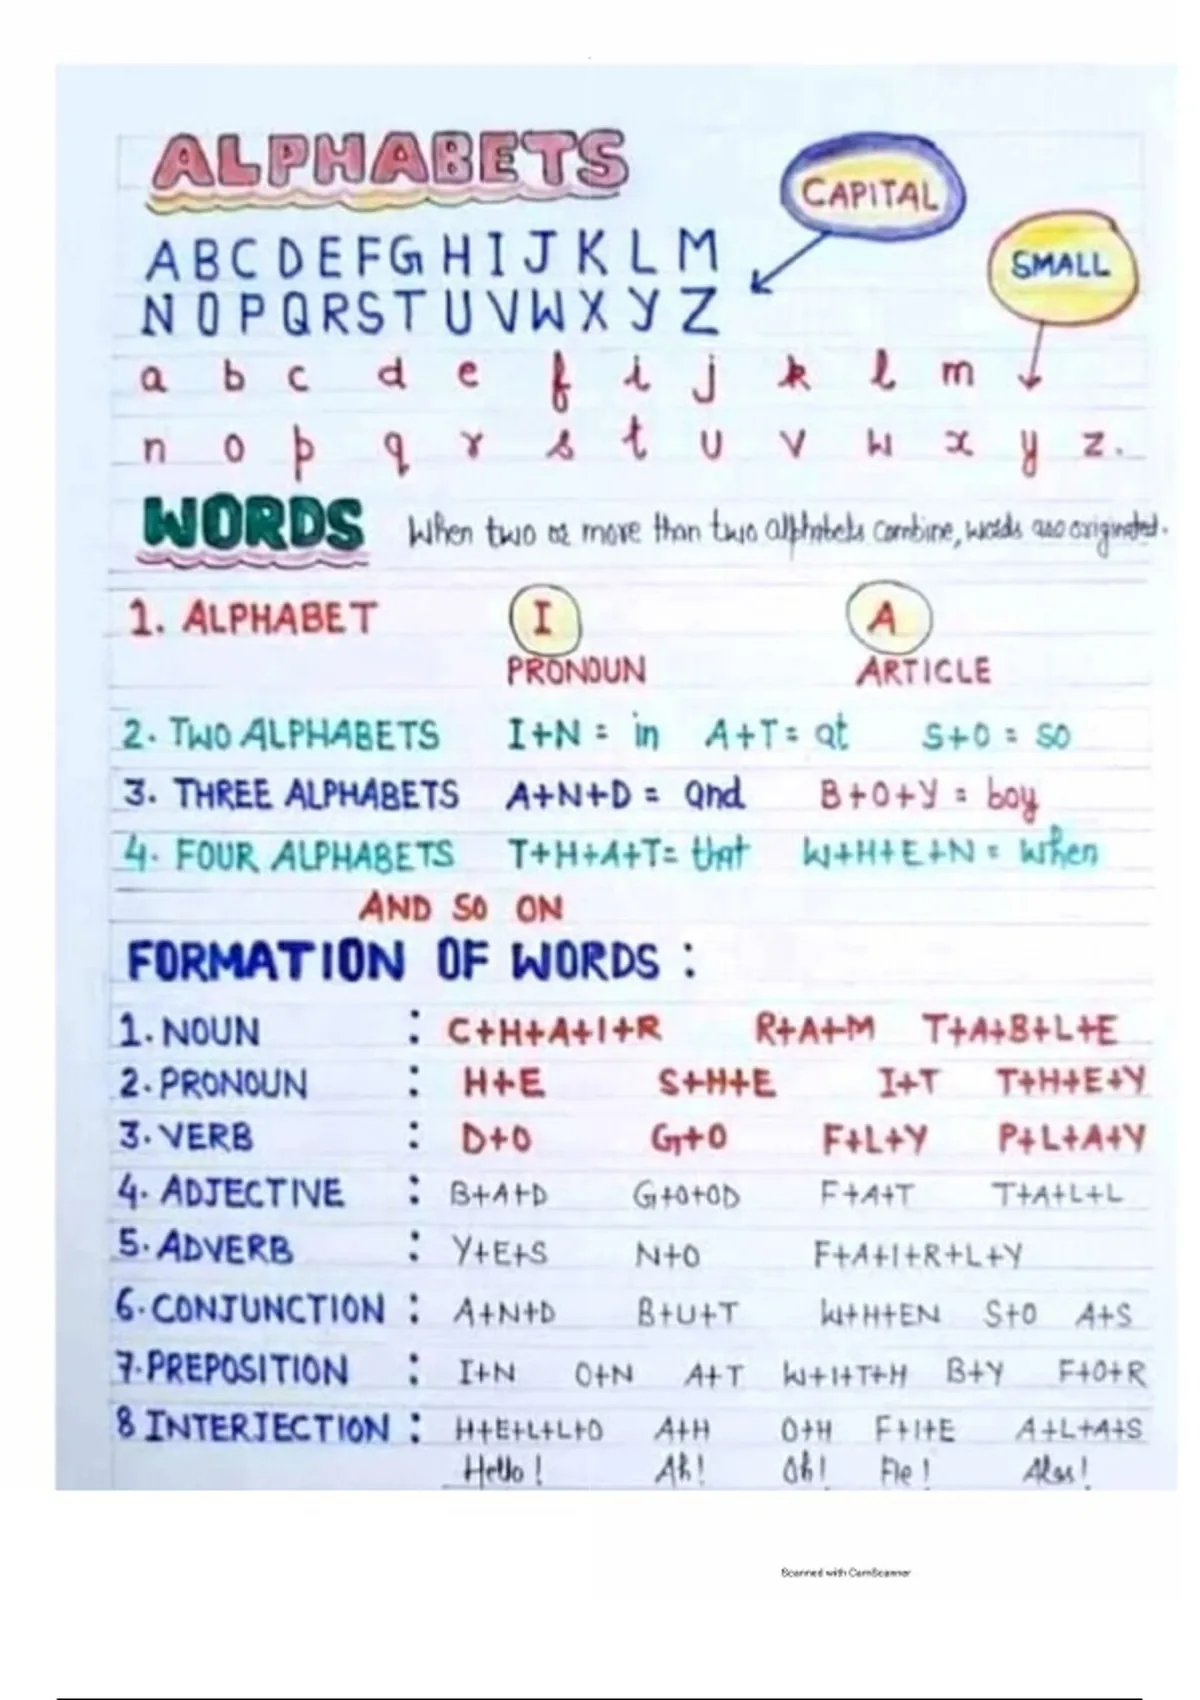 ALPHABETS
CAPITAL
SMALL
A B C D E F G H I J K L M
N O P Q R S T U V W X Y Z
a b c d e f i j k l m
n o p q r s t u v w x y z.
WORDS When two or more than two alphabets combine, words are originated.
1. ALPHABET I A
PRONOUN ARTICLE
2. TWO ALPHABETS I+N = in A+T = at S+O = so
3. THREE ALPHABETS A+N+D = and B+O+Y = boy
4. FOUR ALPHABETS T+H+A+T = that W+H+E+N = when
AND SO ON
FORMATION OF WORDS :
1. NOUN : C+H+A+I+R R+A+M T+A+B+L+E
2. PRONOUN : H+E S+H+E I+T T+H+E+Y
3. VERB : D+O G+O F+L+Y P+L+A+Y
4. ADJECTIVE : B+A+D G+O+OD F+A+T T+A+L+L
5. ADVERB : Y+E+S N+O F+A+I+R+L+Y
6. CONJUNCTION : A+N+D B+U+T W+H+EN S+O A+S
7. PREPOSITION : I+N O+N A+T W+I+T+H B+Y F+O+R
8 INTERJECTION : H+E+L+L+O A+H O+H F+I+E A+L+A+S
Hello! Ah! Oh! Fie! Alas!
Scanned with CamScanner